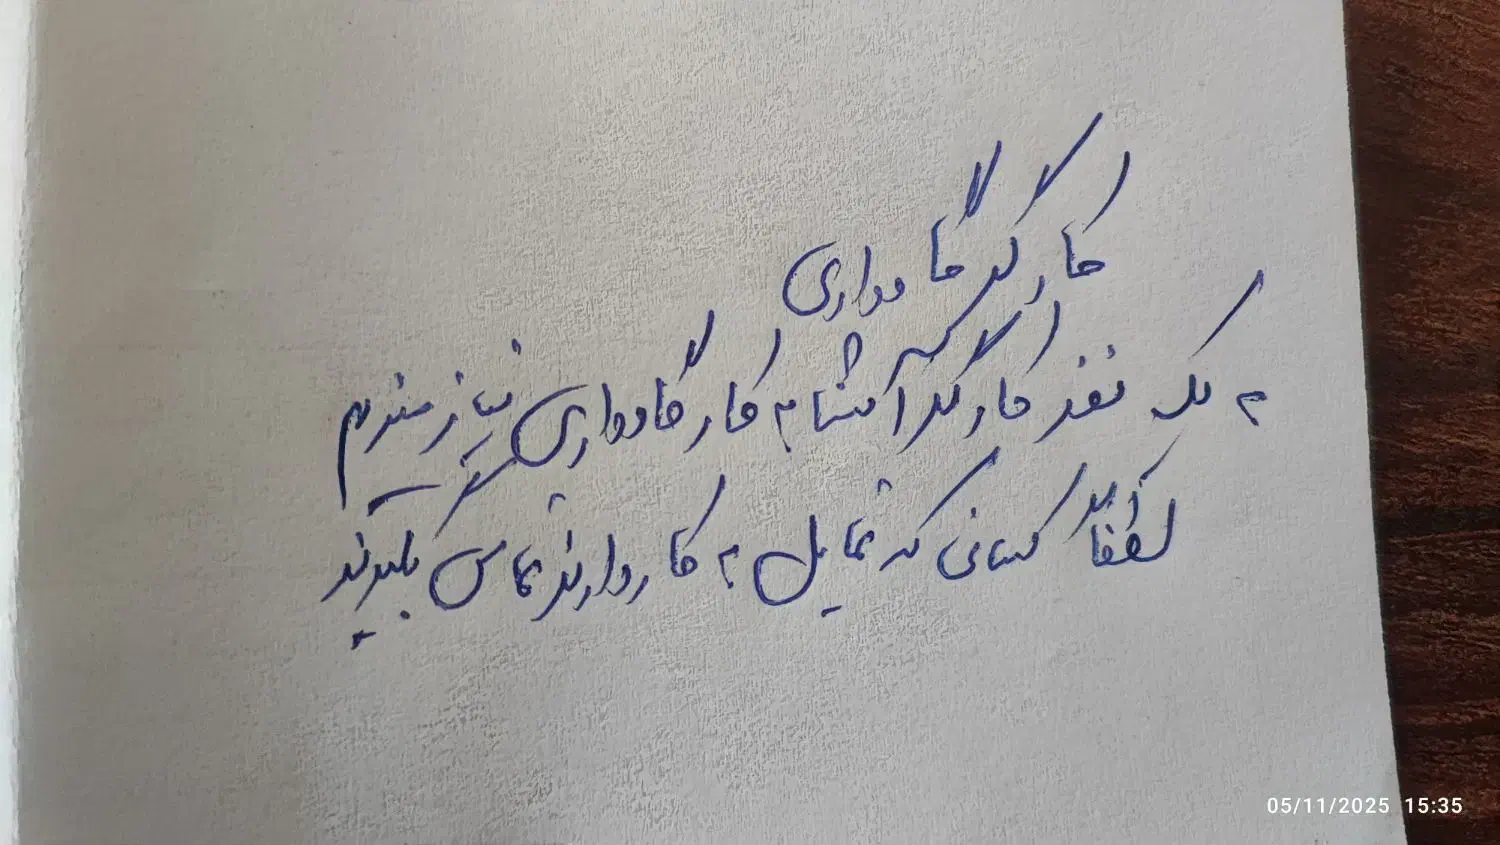 کارگر گاوداری
به یک نفر کارگر آشنا به کار گاوداری نیازمندیم
لطفاً کسانی که تمایل به کار دارند تماس بگیرند
05/11/2025 15:35